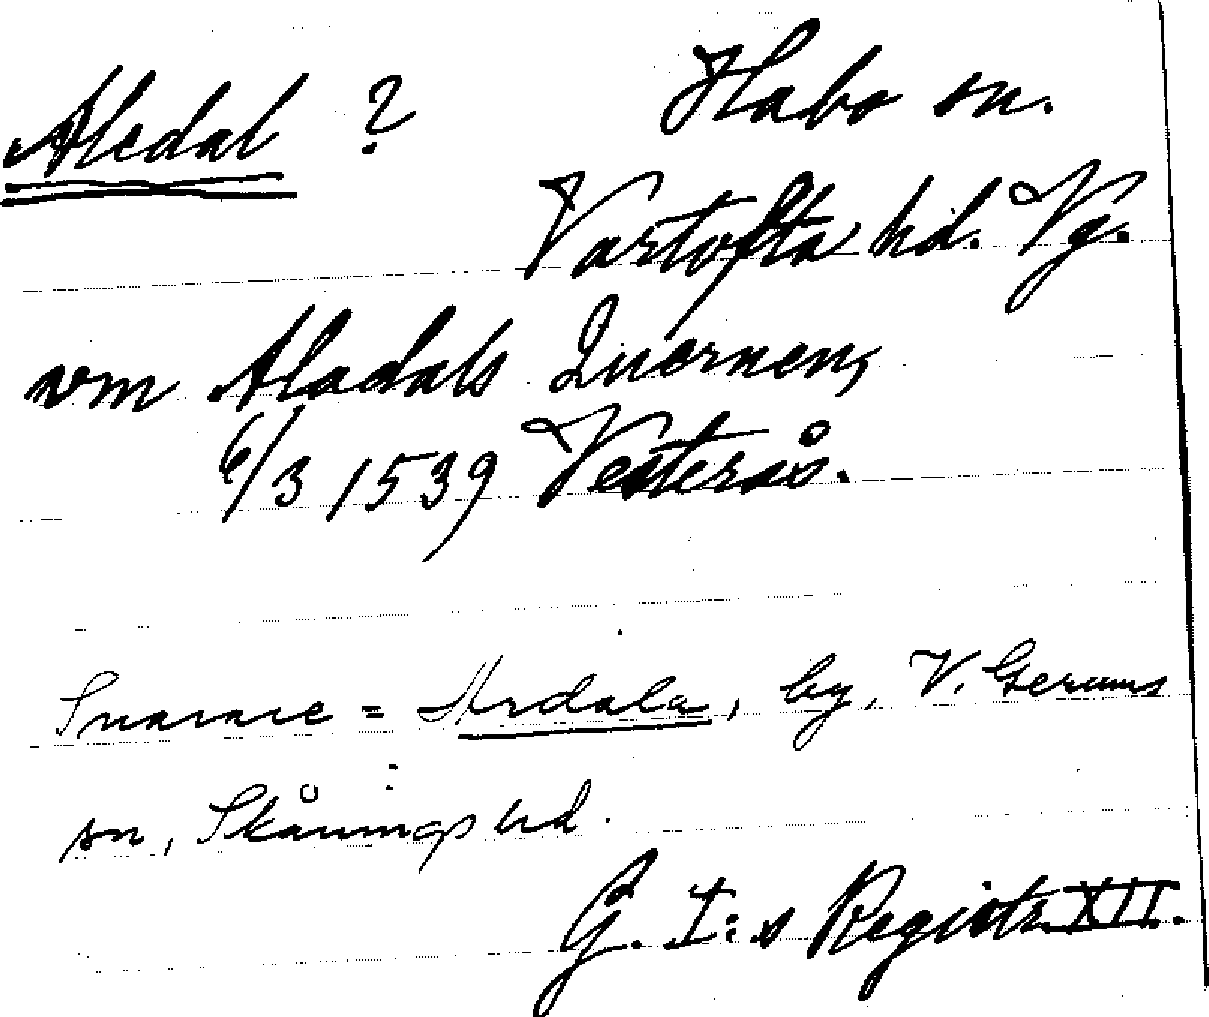 Aledal ? Habo sn.
Vartofta hd. Vg.
om Aladals Quernen,
6/3 1539 Vesterås.
Snarare = Ardala, by, V. Gerums
sn, Skånings hd.
G. I:s Registr. XII.